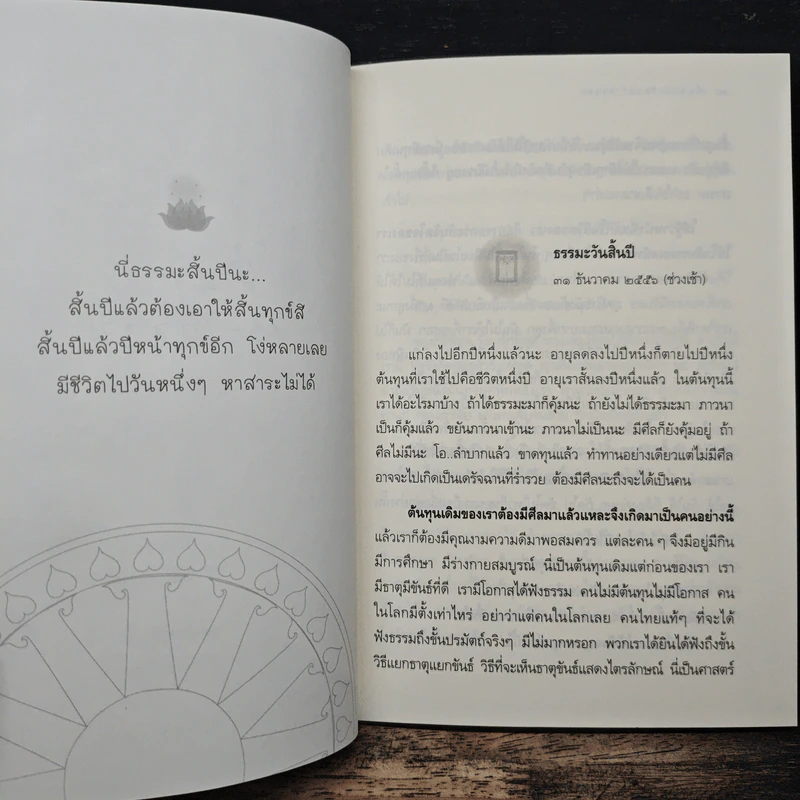 นี่ธรรมะสิ้นปีนะ...
สิ้นปีแล้วต้องเอาให้สิ้นทุกข์สิ
สิ้นปีแล้วปีหน้าทุกข์อีก โง่หลายเลย
มีชีวิตไปวันหนึ่งๆ หาสาระไม่ได้
ธรรมะวันสิ้นปี
๓๑ ธันวาคม ๒๕๕๖ (ช่วงเช้า)
แก่ลงไปอีกปีหนึ่งแล้วนะ อายุลดลงไปปีหนึ่งก็ตายไปปีหนึ่ง
ต้นทุนที่เราใช้ไปคือชีวิตหนึ่งปี อายุเราสั้นลงปีหนึ่งแล้ว ในต้นทุนนี้
เราได้อะไรมาบ้าง ถ้าได้ธรรมะมาก็คุ้มนะ ถ้ายังไม่ได้ธรรมะมา ภาวนา
เป็นก็คุ้มแล้ว ขยันภาวนาเข้านะ ภาวนาไม่เป็นนะ มีศีลก็ยังคุ้มอยู่ ถ้า
ศีลไม่มีนะ โอ..ลำบากแล้ว ขาดทุนแล้ว ทำทานอย่างเดียวแต่ไม่มีศีล
อาจจะไปเกิดเป็นเดรัจฉานที่ร่ำรวย ต้องมีศีลนะถึงจะได้เป็นคน
ต้นทุนเดิมของเราต้องมีศีลมาแล้วแหละจึงเกิดมาเป็นคนอย่างนี้
แล้วเราก็ต้องมีคุณงามความดีมาพอสมควร แต่ละคน ๆ จึงมีอยู่มีกิน
มีการศึกษา มีร่างกายสมบูรณ์ นี่เป็นต้นทุนเดิมแต่ก่อนของเรา เรา
มีธาตุมีขันธ์ที่ดี เรามีโอกาสได้ฟังธรรม คนไม่มีต้นทุนไม่มีโอกาส คน
ในโลกมีตั้งเท่าไหร่ อย่าว่าแต่คนในโลกเลย คนไทยแท้ๆ ที่จะได้
ฟังธรรมถึงขั้นปรมัตถ์จริงๆ มีไม่มากหรอก พวกเราได้ยินได้ฟังถึงขั้น
วิธีแยกธาตุแยกขันธ์ วิธีที่จะเห็นธาตุขันธ์แสดงไตรลักษณ์ นี่เป็นศาสตร์